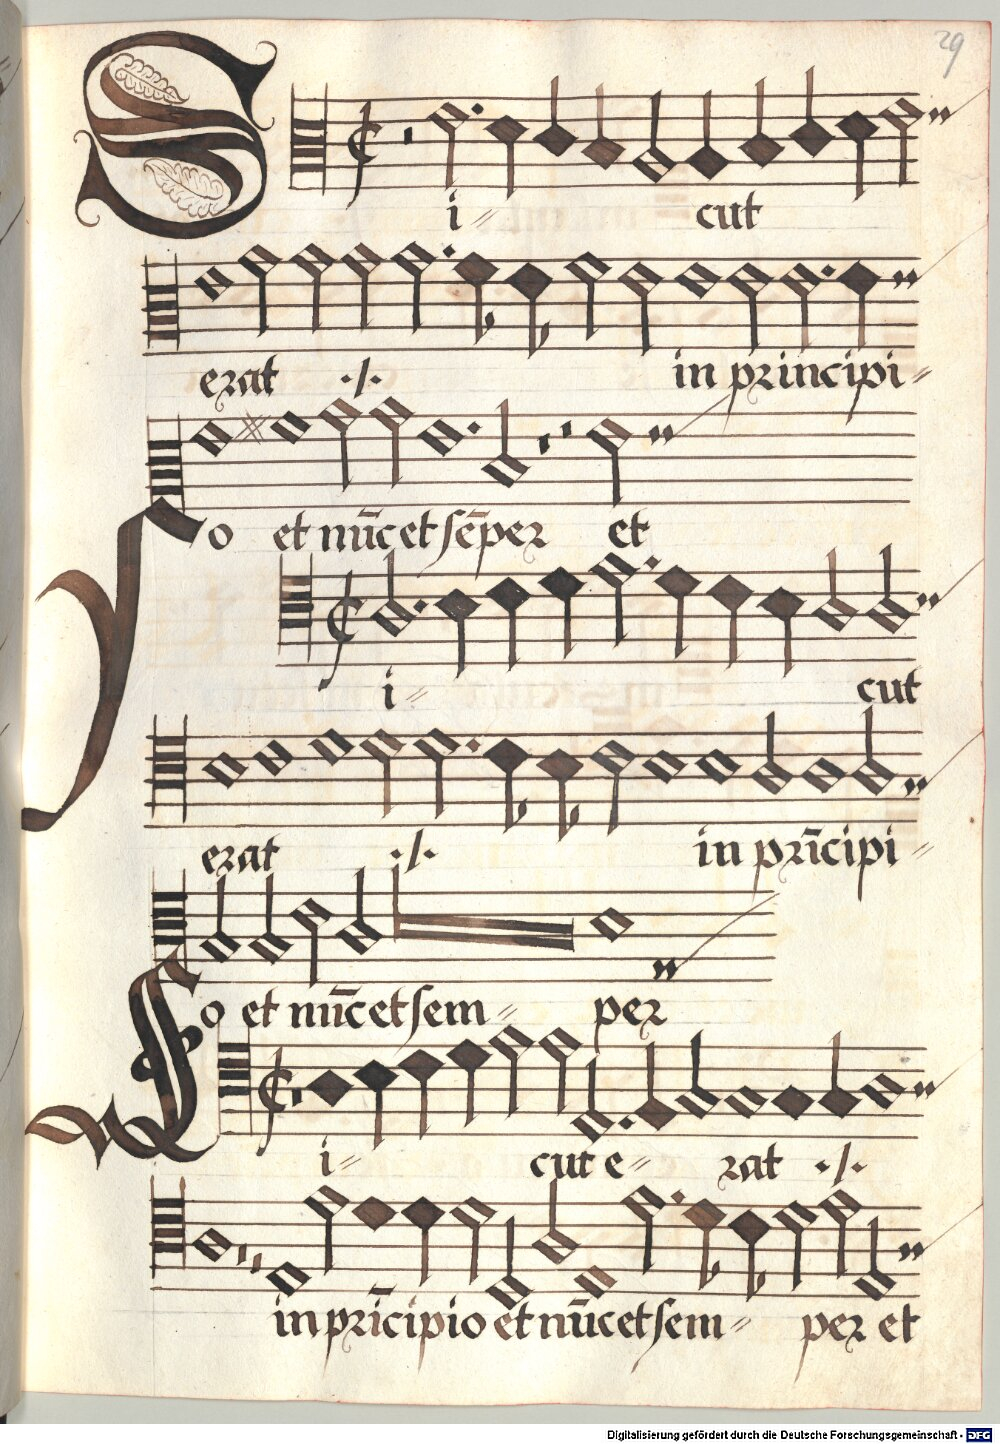 29
Si⸗ cut
erat ·/· in principi⸗
o et nūc et sēper et
Si⸗ cut
erat ·/· in prīcipi⸗
o et nūc et sem⸗ per
Si⸗ cut e⸗ rat ·/·
in prīcipio et nūc et sem⸗ per et
Digitalisierung gefördert durch die Deutsche Forschungsgemeinschaft - DFG